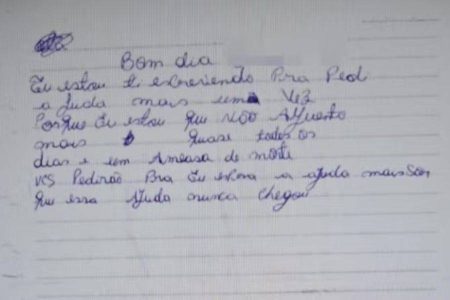 Bom dia
Eu estou ti escrevendo Pra Pedi
a Juda mais uma Vez
Porque Eu estou que não Aguento
mais quase todos os
dias e um Ameasa de morte
vcs Pedirão Pra Eu espera a ajuda mais
que essa Ajuda nunca chegou